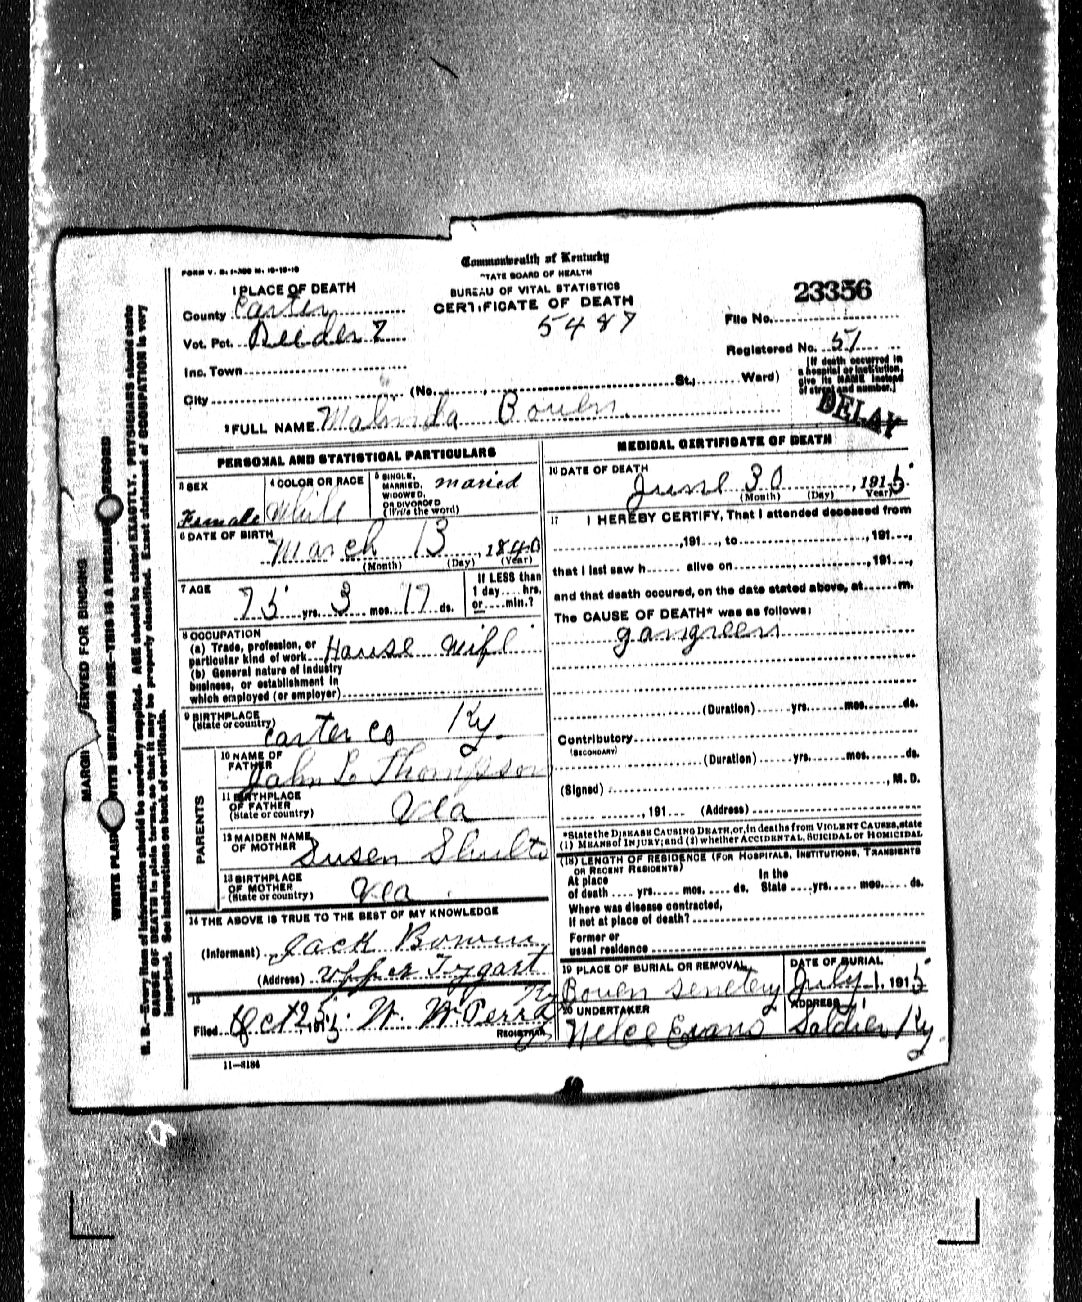 Commonwealth of Kentucky
STATE BOARD OF HEALTH
BUREAU OF VITAL STATISTICS
CERTIFICATE OF DEATH
5487
FORM V. S. 
1 PLACE OF DEATH
County Carter
Vot. Pct. Reeder 7
Inc. Town
City (No. St., Ward)
23356
File No.
Registered No. 51
[If death occurred in
a hospital or institution,
give its NAME instead
of street and number.]
DELAY
2 FULL NAME Malinda Bowen
PERSONAL AND STATISTICAL PARTICULARS
3 SEX
Female
4 COLOR OR RACE
White
5 SINGLE,
MARRIED,
WIDOWED,
OR DIVORCED
(Write the word)
maried
6 DATE OF BIRTH
March 13, 1840
(Month) (Day) (Year)
7 AGE
75 yrs. 3 mos. 17 ds.
If LESS than
1 day.... hrs.
or.... min.?
8 OCCUPATION
(a) Trade, profession, or
particular kind of work House wife
(b) General nature of industry
business, or establishment in
which employed (or employer)
9 BIRTHPLACE
(State or country)
Carter Co Ky.
PARENTS
10 NAME OF
FATHER
John L Thompson
11 BIRTHPLACE
OF FATHER
(State or country)
Va
12 MAIDEN NAME
OF MOTHER
Susen Shults
13 BIRTHPLACE
OF MOTHER
(State or country)
Va
14 THE ABOVE IS TRUE TO THE BEST OF MY KNOWLEDGE
(Informant) Jack Bowen
(Address) Upper Tygart
Ky
15
Filed Oct 25, 1915 W. W. Perry
REGISTRAR
11—3184
MEDICAL CERTIFICATE OF DEATH
16 DATE OF DEATH
June 30, 1915
(Month) (Day) (Year)
17 I HEREBY CERTIFY, That I attended deceased from
, 191..., to , 191...,
that I last saw h alive on , 191...,
and that death occured, on the date stated above, at m.
The CAUSE OF DEATH* was as follows:
gangreen
(Duration) yrs. mos. ds.
Contributory
(SECONDARY)
(Duration) yrs. mos. ds.
(Signed) , M. D.
, 191... (Address)
*State the DISEASE CAUSING DEATH, or, in deaths from VIOLENT CAUSES, state
(1) MEANS of INJURY; and (2) whether ACCIDENTAL, SUICIDAL or HOMICIDAL
(18) LENGTH OF RESIDENCE (FOR HOSPITALS, INSTITUTIONS, TRANSIENTS
OR RECENT RESIDENTS)
At place In the
of death yrs. mos. ds. State yrs. mos. ds.
Where was disease contracted,
if not at place of death?
Former or
usual residence
19 PLACE OF BURIAL OR REMOVAL
Bowen Semetery
DATE OF BURIAL
July 1, 1915
20 UNDERTAKER
Nelce Evans
ADDRESS
Soldier Ky
MARGIN RESERVED FOR BINDING
WRITE PLAINLY WITH UNFADING INK—THIS IS A PERMANENT RECORD
N. B.—Every item of information should be carefully supplied. AGE should be stated EXACTLY. PHYSICIANS should state
CAUSE OF DEATH in plain terms, so that it may be properly classified. Exact statement of OCCUPATION is very
important. See instructions on back of certificate.